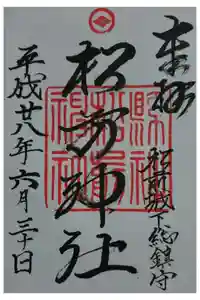 奉拝
松前城下総鎮守
松前神社
平成廿八年六月三十日